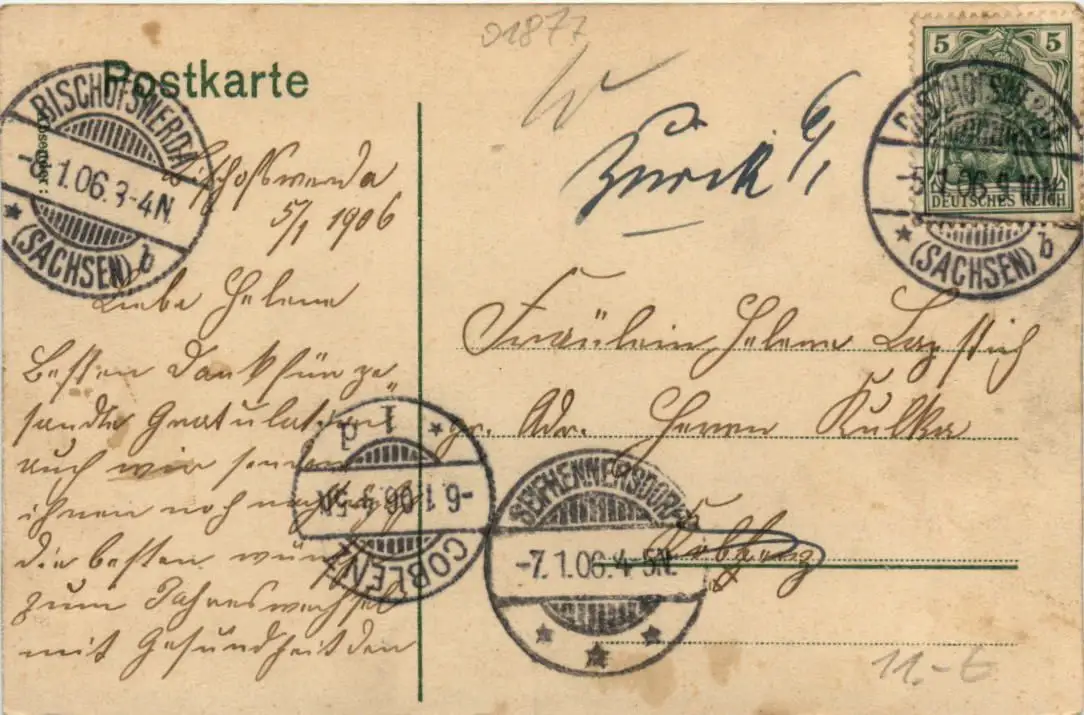 01877
Postkarte
5 5
DEUTSCHES REICH
BISCHOFSWERDA
5.1.06.9-10N.
(SACHSEN) b
W
Zurück 6/1
BISCHOFSWERDA
1.06.3-4N.
(SACHSEN) b
Absender:
Bischofswerda
5/1 1906
Liebe Helene
Besten Dank für ge
sandte Gratulation
auch wir senden
ihnen noch nachträgl
die besten wünsche
zum Jahreswechsel
mit Gesundheit den
Fräulein Helene
pr. Adr. Herrn Kulka
Coblenz
COBLENZ
-6.1.06.3-5N.
1 d
SEIFHENNERSDORF
-7.1.06.4-5N.
11.-€